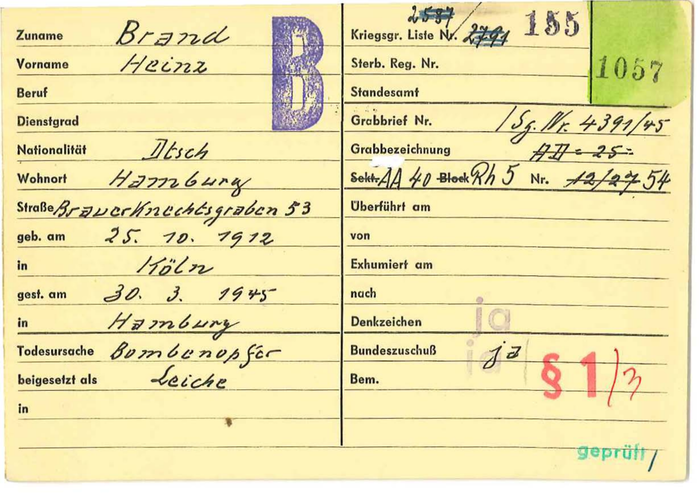 Zuname Brand
Vorname Heinz
Beruf
Dienstgrad
Nationalität Dtsch
Wohnort Hamburg
Straße Brauerknechtsgraben 53
geb. am 25. 10. 1912
in Köln
gest. am 30. 3. 1945
in Hamburg
Todesursache Bombenopfer
beigesetzt als Leiche
in
B
Kriegsgr. Liste Nr. 2791 155
Sterb. Reg. Nr. 1057
Standesamt
Grabbrief Nr. / Sg. Nr. 4391/45
Grabbezeichnung AD = 25 =
Sekt. AA 40 Block Rh 5 Nr. 12/27 54
Überführt am
von
Exhumiert am
nach
Denkzeichen ja
Bundeszuschuß ja ja
Bem. § 1/3
geprüft